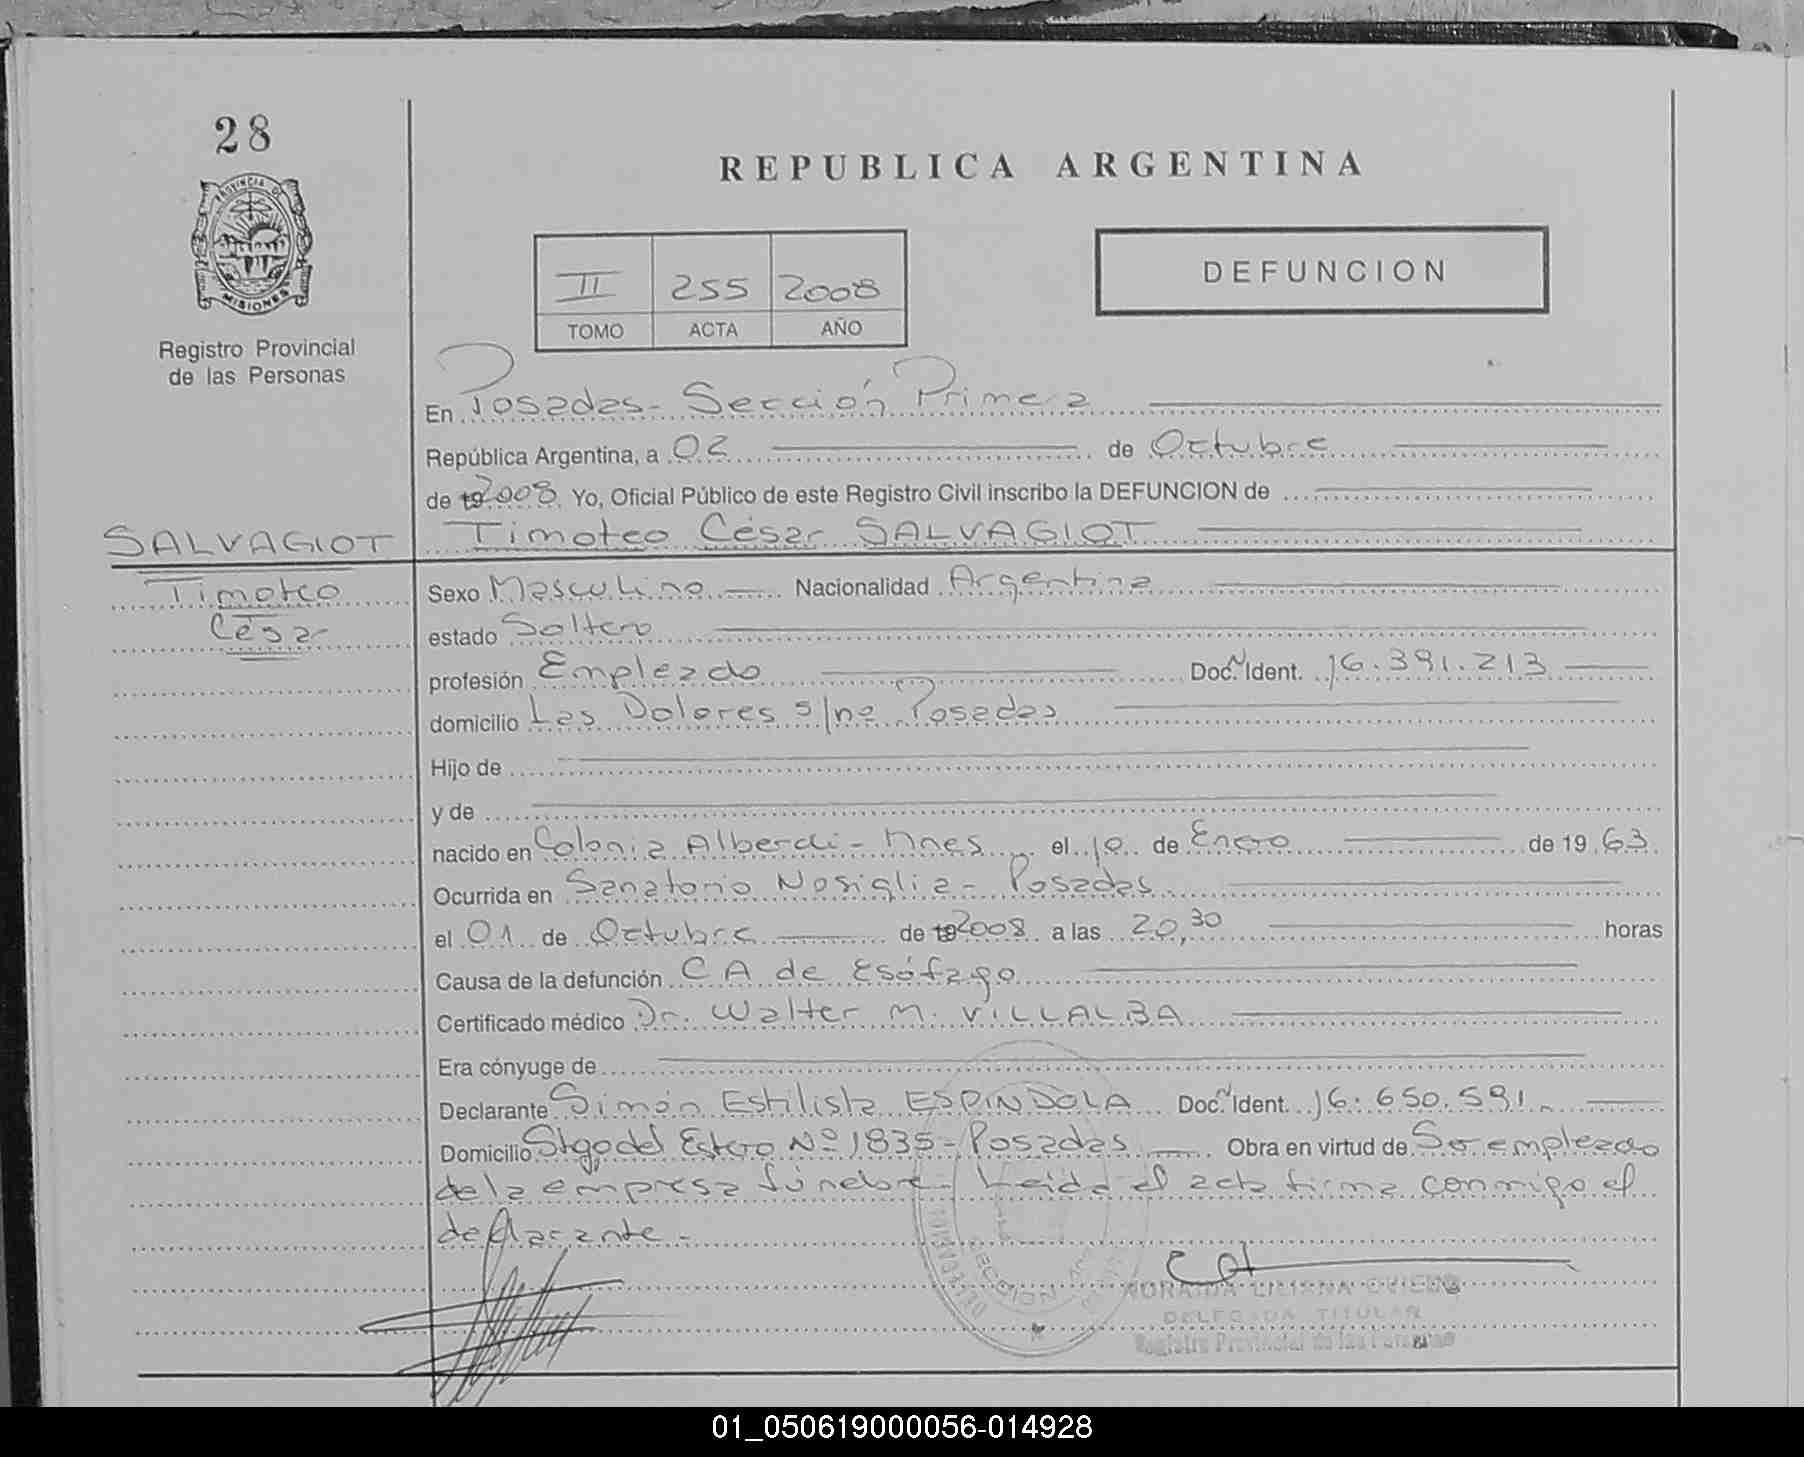 28
PROVINCIA DE
MISIONES
Registro Provincial
de las Personas
REPUBLICA ARGENTINA
II 255 2008
TOMO ACTA AÑO
DEFUNCION
En Posadas- Sección Primera
República Argentina, a 02 de Octubre
de 19 2008 Yo, Oficial Público de este Registro Civil inscribo la DEFUNCION de
SALVAGIOT Timoteo César SALVAGIOT
Timoteo
César
Sexo Masculino Nacionalidad Argentina
estado Soltero
profesión Empleado Doc. N Ident. 16.391.213
domicilio Las Dolores s/nº Posadas
Hijo de
y de
nacido en Colonia Alberdi - Mnes el 10 de Enero de 19 63
Ocurrida en Sanatorio Nosiglia - Posadas
el 01 de Octubre de 19 2008 a las 20,30 horas
Causa de la defunción CA de Esófago
Certificado médico Dr. Walter M. VILLALBA
Era cónyuge de
Declarante Simón Estilista ESPINDOLA Doc. N Ident. 16.650.591.
Domicilio Stgo del Estero Nº 1835 - Posadas Obra en virtud de Ser empleado
de la empresa fúnebre - Leída el acta firma conmigo el
declarante -
SECCION
NORAIDA LILIANA OVIEDO
DELEGADA TITULAR
Registro Provincial de las Personas
01_050619000056-014928